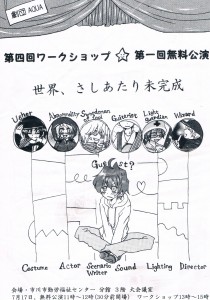 劇団 AQUA
第四回ワークショップ ☆ 第一回無料公演
世界、さしあたり未完成
Guitarist
Light
Guardian
Wizard
Costume
Actor
Scenario
Writer
Sound
Lighting
Director
会場・市川市勤労福祉センター 分館 3階 大会議室
7月17日、無料公演11時~12時(30分前開場) ワークショップ13時~15時